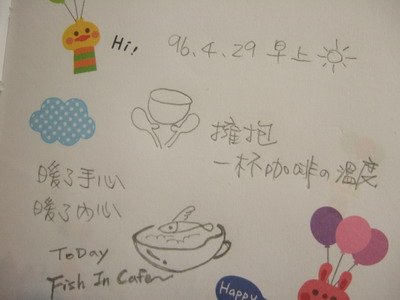 Hi!
96.4.29 早上
擁抱
一杯咖啡の溫度
暖了手心
暖了內心
ToDay
Fish In Cafe
Happy